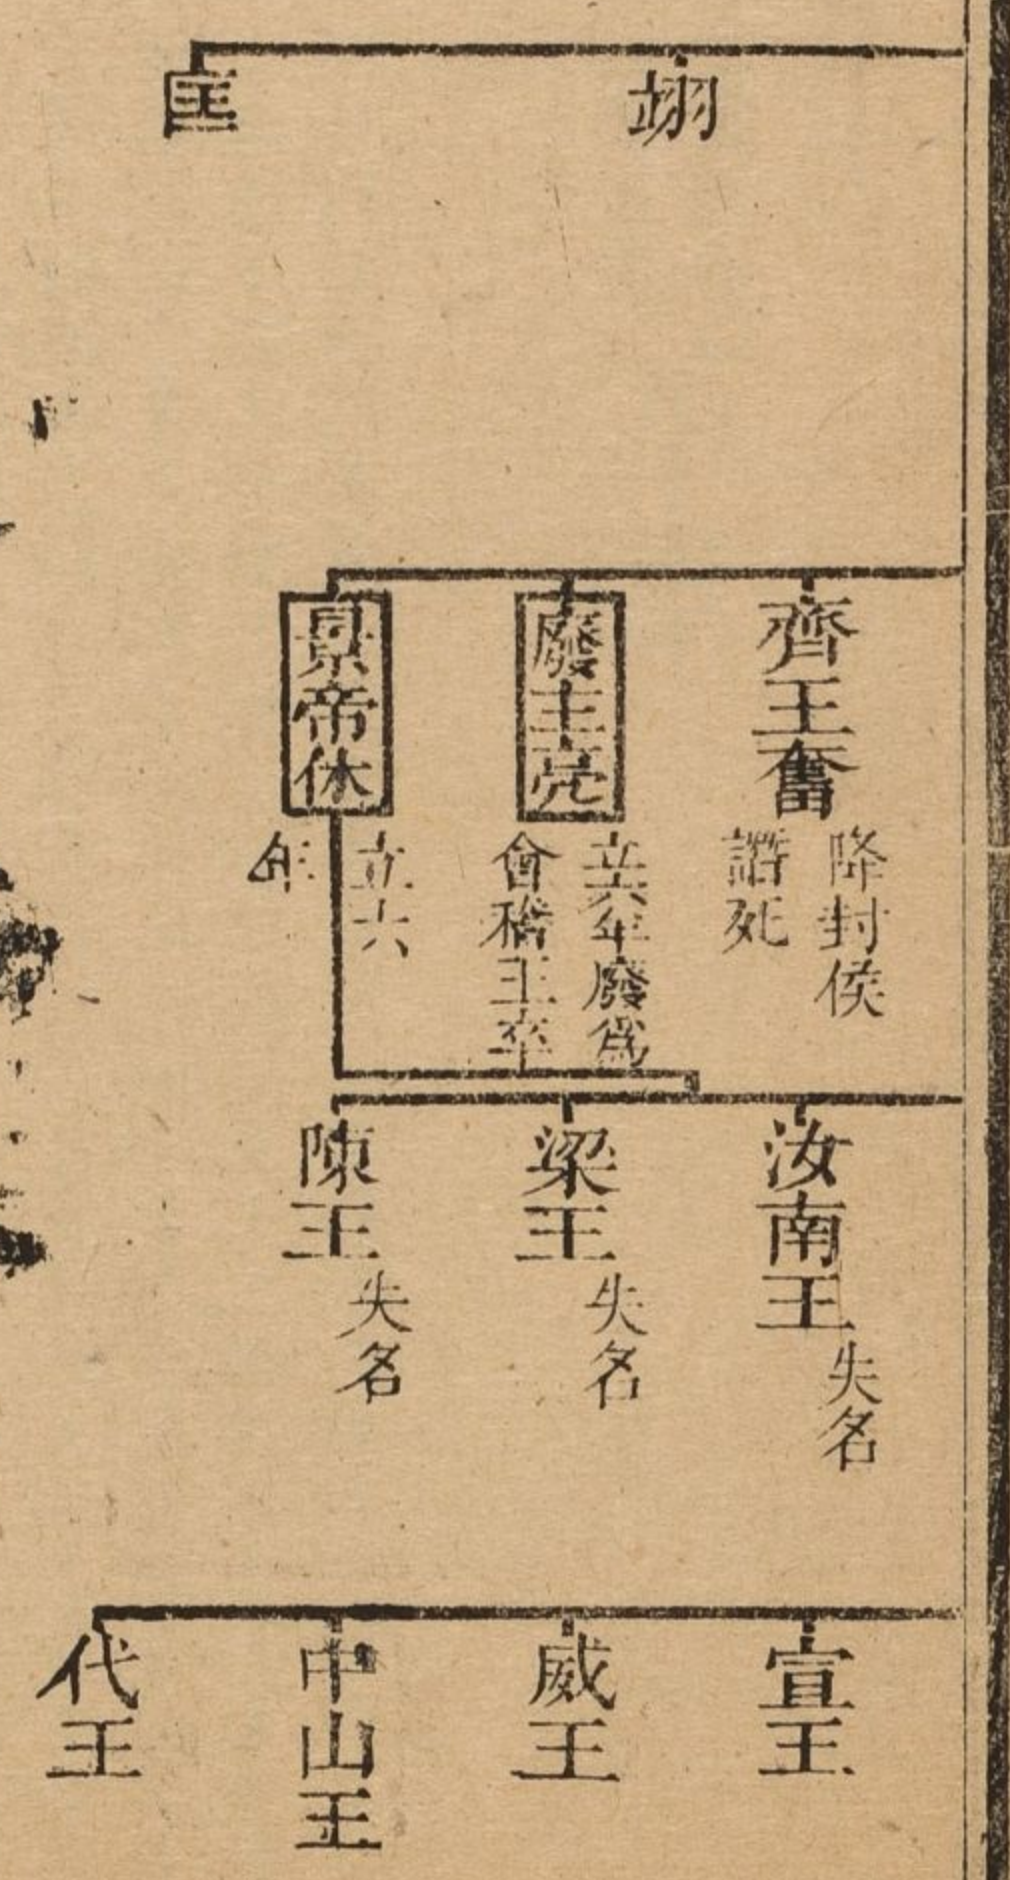 翊
匡
齊王奮
降封侯
譖死
廢主亮
立六年廢爲
會稽王卒
景帝休
立六
年
汝南王
失名
梁王
失名
陳王
失名
宣王
威王
中山王
代王